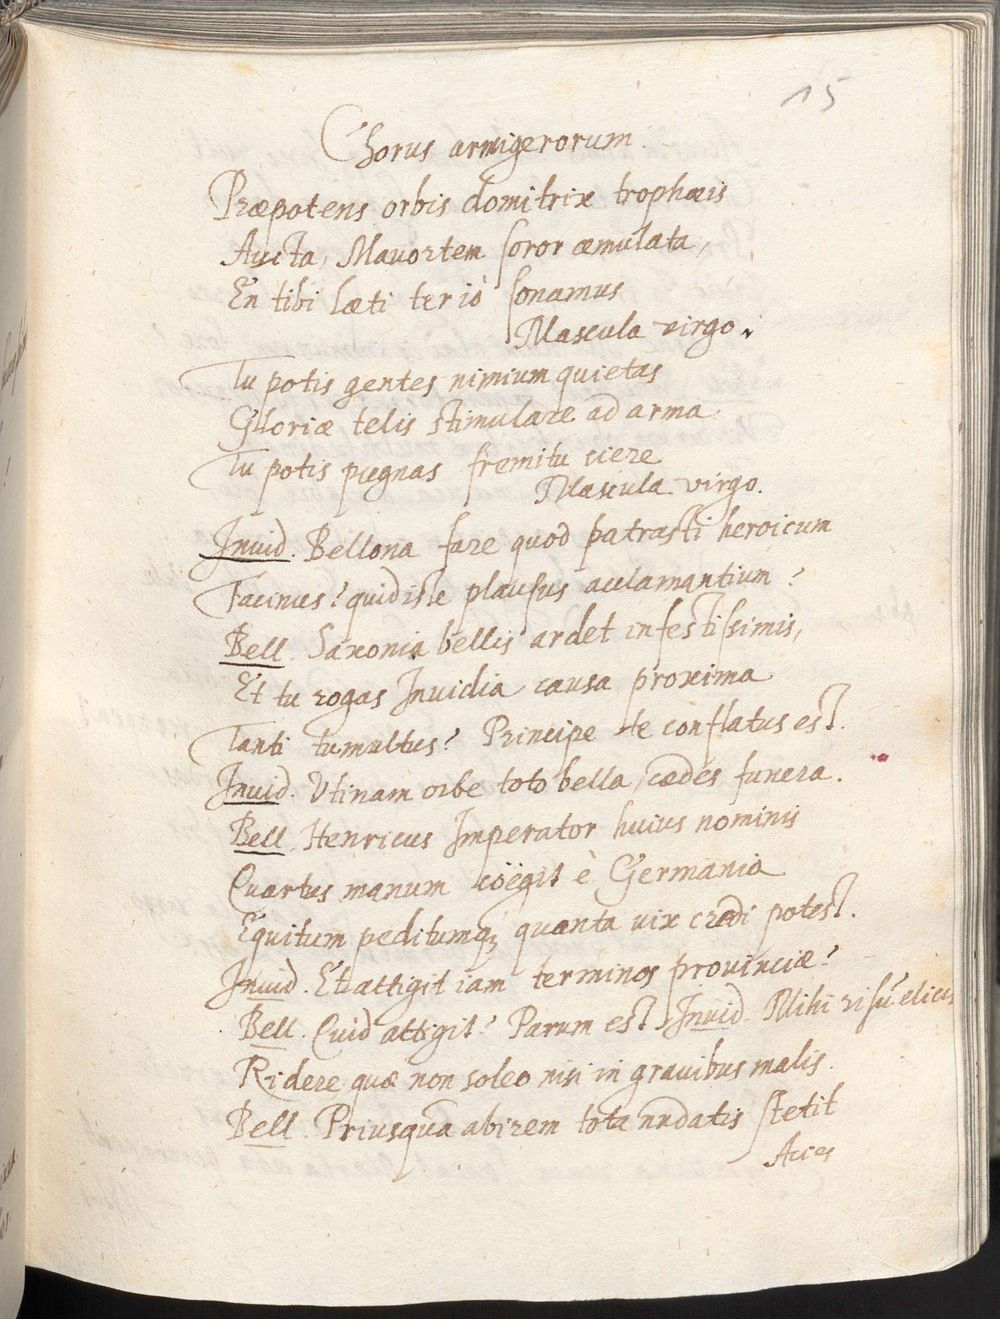 15
Chorus armigerorum.
Præpotens orbis domitrix trophæis
Aucta, Mavortem soror æmulata,
En tibi læti ter iò sonamus
Mascula virgo.
Tu potis gentes nimium quietas
Gloriæ telis stimulare ad arma
Tu potis pugnas fremitu ciere
Mascula virgo.
Invid. Bellona fare quod patrasti heroicum
Facinus? quid iste plausus acclamantium?
Bell. Saxonia bellis ardet infestissimis,
Et tu rogas Invidia causa proxima
Tanti tumultus? Principe te conflatus est.
Invid. Utinam orbe toto bella, cædes funera.
Bell. Henricus Imperator huius nominis
Quartus manum coëgit è Germania
Equitum peditumq; quanta vix credi potest.
Invid. Et attigit iam terminos provinciæ?
Bell. Quid attigit? Parum est. Invid. Mihi risū elicis
Ridere quæ non soleo nisi in gravibus malis.
Bell. Priusquā abirem tota nudatis stetit
Acies